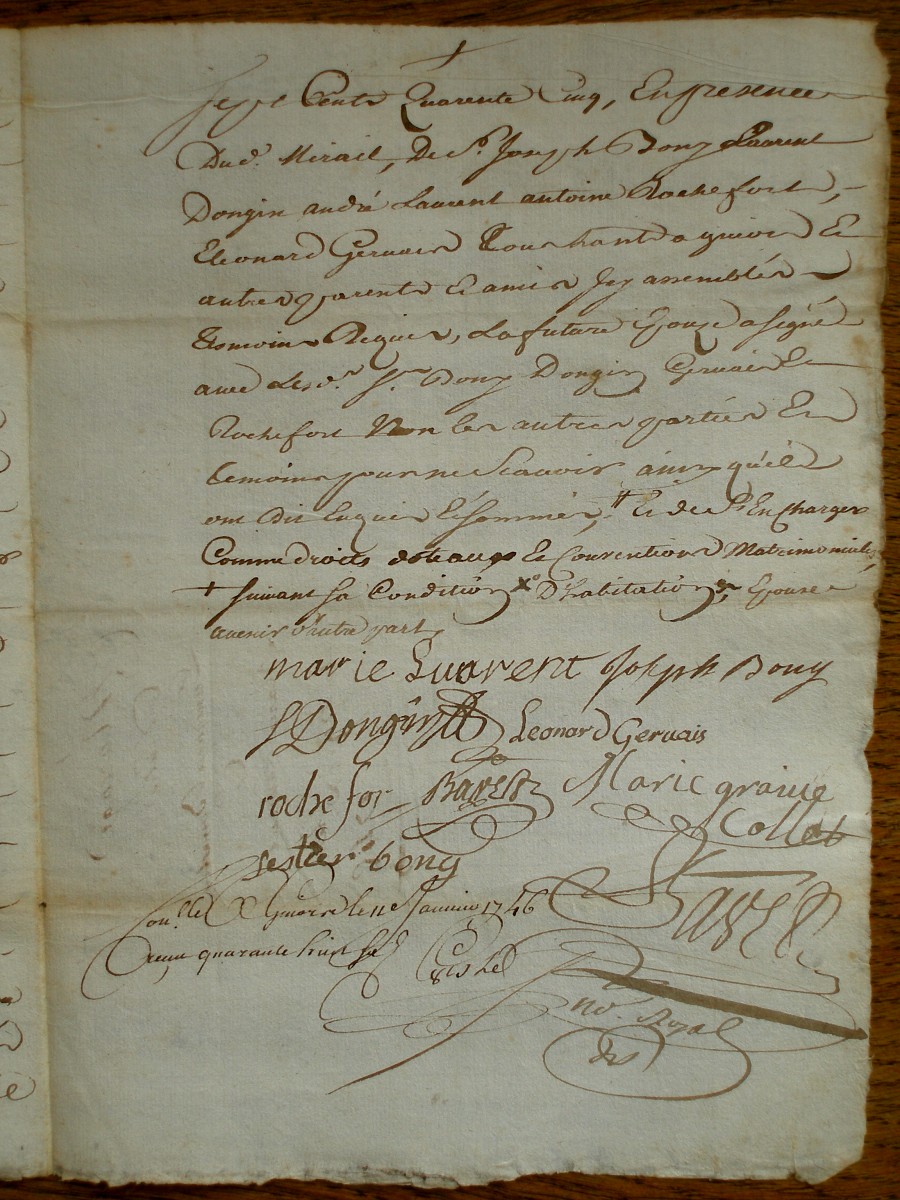 sept Cents Quarente Cinq, En presence
Dud. Mirail, De Sr. Joseph Bony Laurent
Dongin andré Laurent antoine Rochefort,
Eleonard Gervais Et
autres parents Et amis Icy assemblés
temoins Requis, La future Epouse a signé
avec Lesd. Srs. Bony Dongin Gervais Et
Rochefort Non les autres parties Et
temoins pour ne Scavoir ainsy qu'il
ont dit Enquis Et sommés, + Et de S'En Charger
Comme droits doteaux Et Conventions Matrimoniales
+ suivant sa Condition x D'habitation, Epouse a
avenir d'autre part
marie Luarent Joseph Bony
Dongin Leonard Gervais
roche for Marie graive
Collet
sestier bony
le 11e Janvier 1746
Reçu quarante huit s
no. Royal